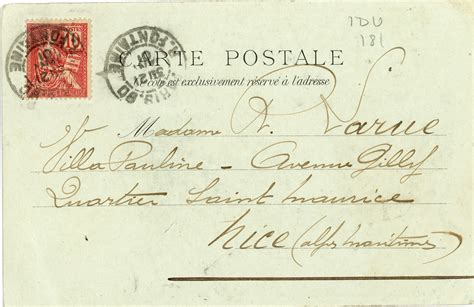 IDU
181
CARTE POSTALE
Ce côté est exclusivement réservé à l'adresse
Madame A. Larue
Villa Pauline - Avenue Gilly
Quartier Saint Maurice
Nice (Alpes Maritimes)